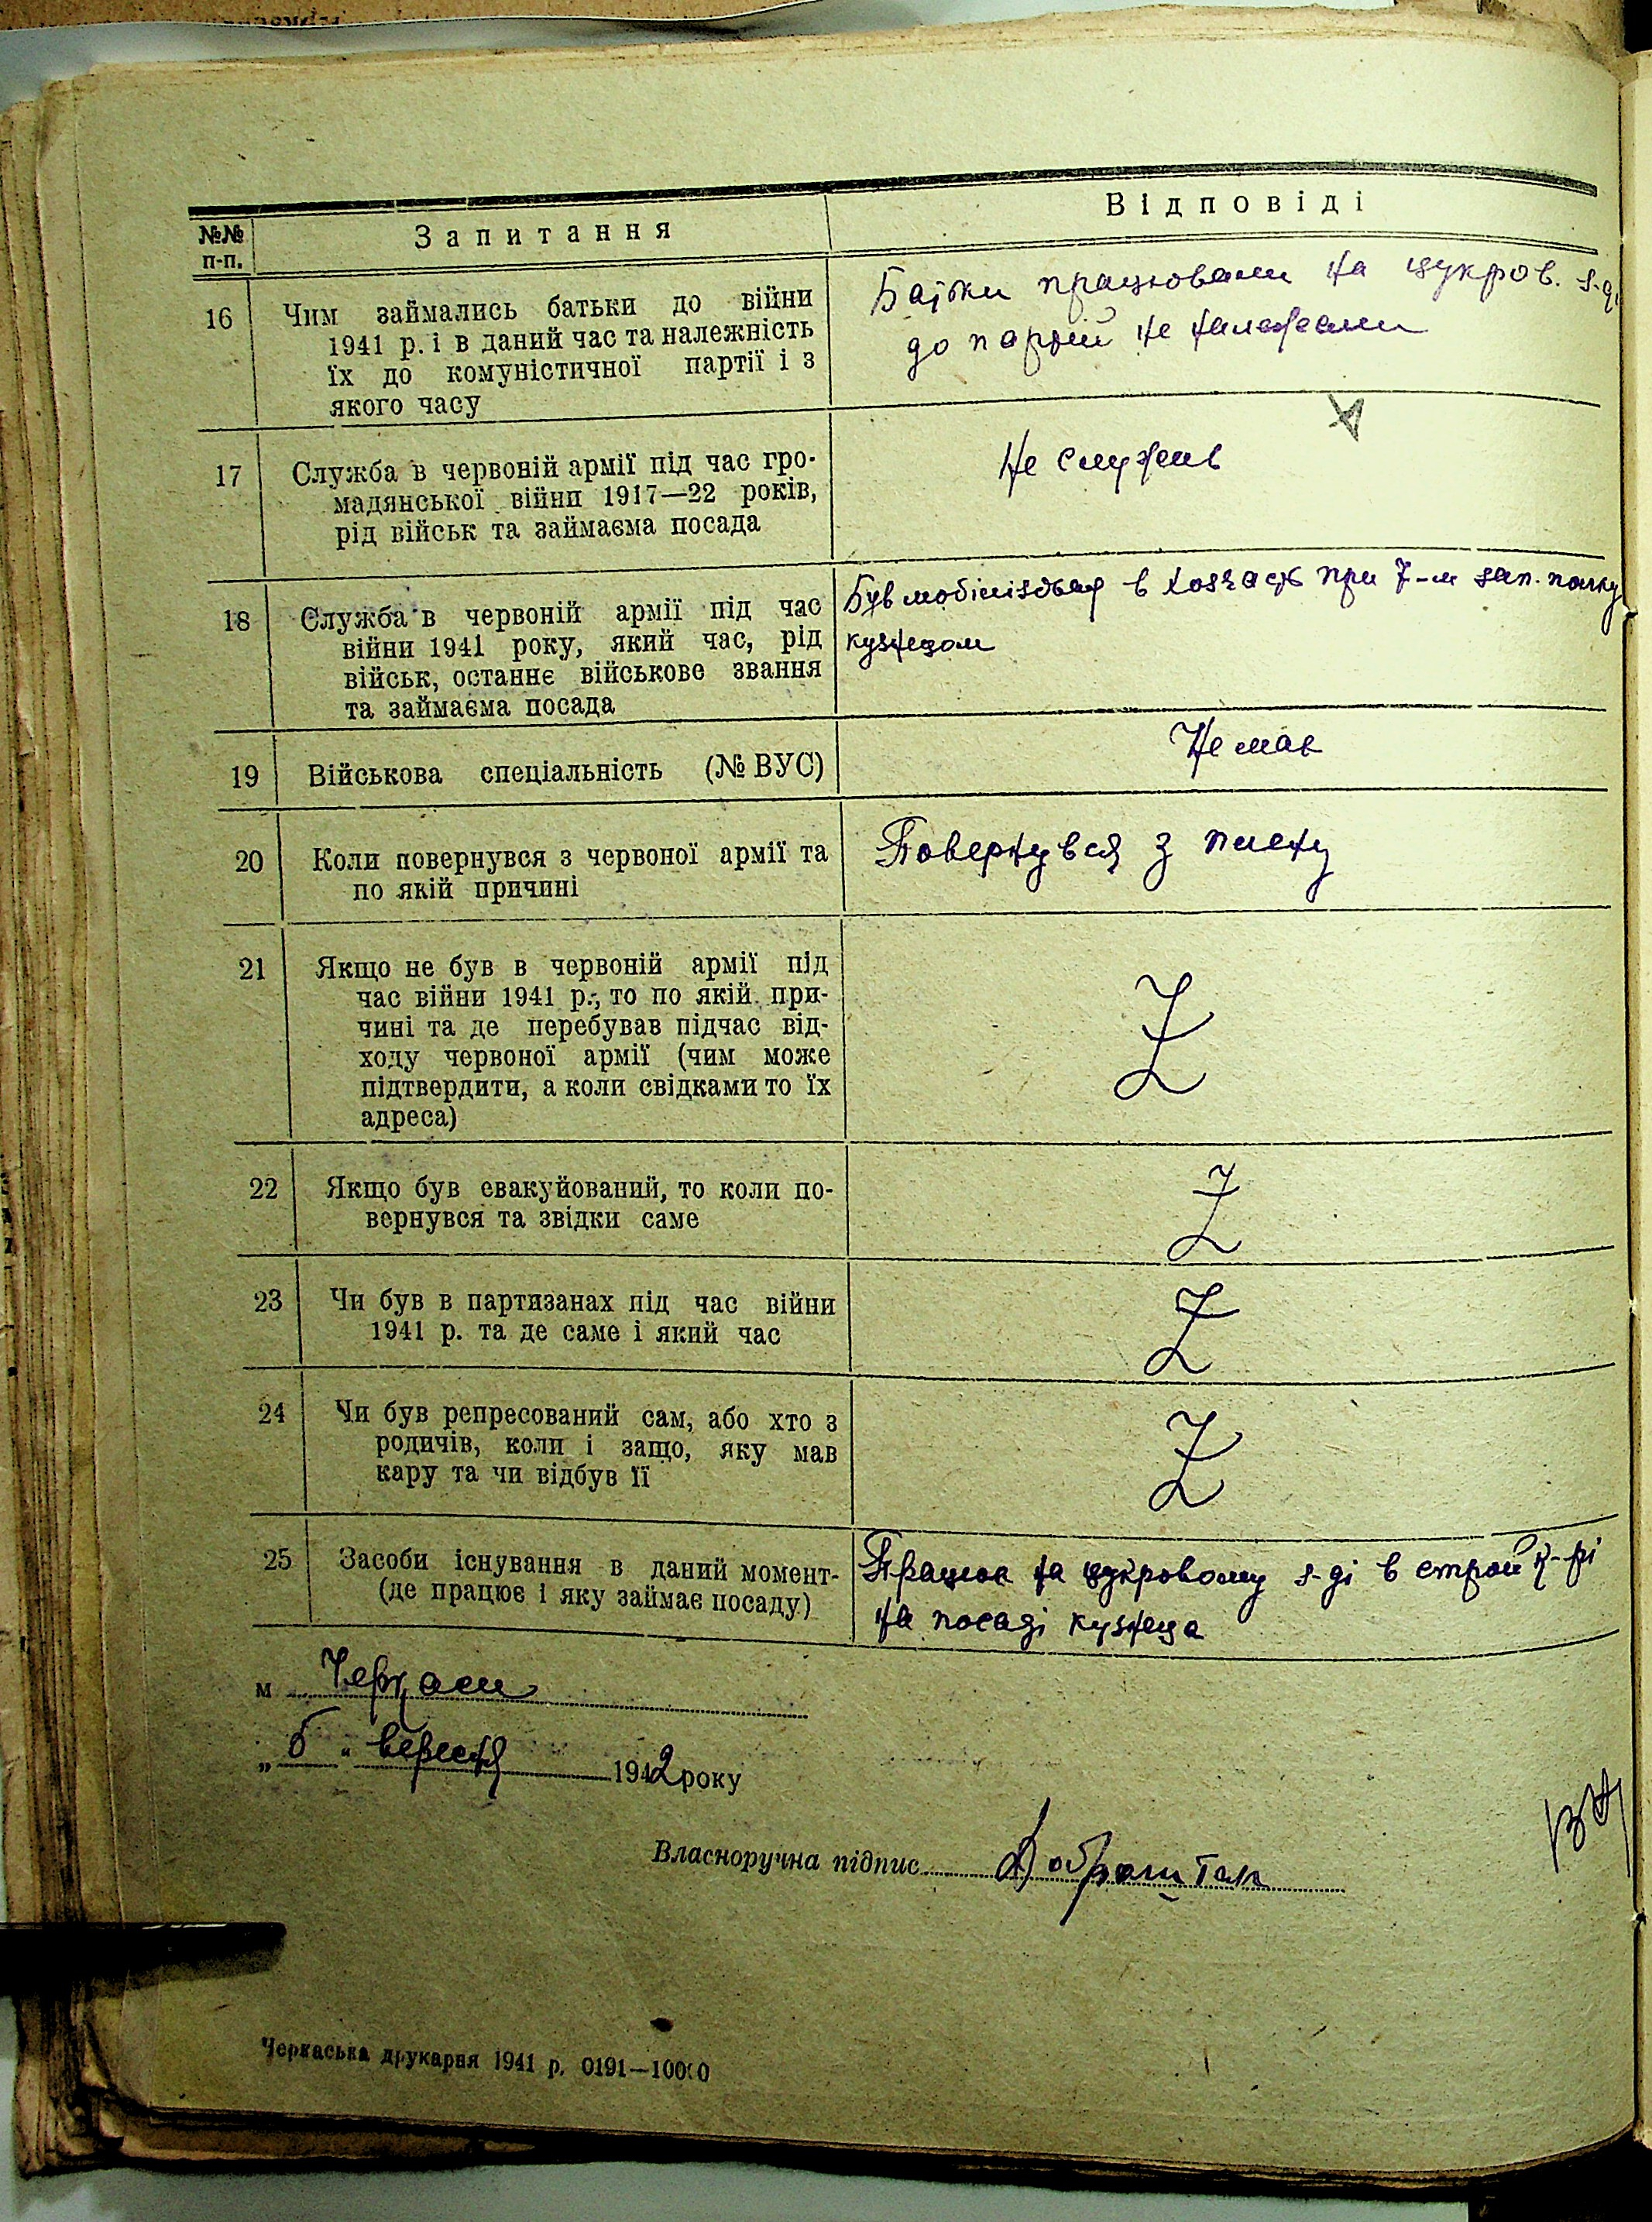 №№
п-п.
Запитання
Відповіді
16
Чим займались батьки до війни
1941 р. і в даний час та належність
їх до комуністичної партії і з
якого часу
Батьки працювали на цукров. з-ді
до партій не належали
17
Служба в червоній армії під час гро-
мадянської війни 1917—22 років,
рід військ та займаєма посада
Не служив
18
Служба в червоній армії під час
війни 1941 року, який час, рід
військ, останнє військове звання
та займаєма посада
Був мобілізован в хозчасть при 7-м зап. полку
кузнецом
19
Військова спеціальність (№ ВУС)
Не мав
20
Коли повернувся з червоної армії та
по якій причині
Повернувся з плену
21
Якщо не був в червоній армії під
час війни 1941 р., то по якій при-
чині та де перебував підчас від-
ходу червоної армії (чим може
підтвердити, а коли свідками то їх
адреса)
Z
22
Якщо був евакуйований, то коли по-
вернувся та звідки саме
Z
23
Чи був в партизанах під час війни
1941 р. та де саме і який час
Z
24
Чи був репресований сам, або хто з
родичів, коли і защо, яку мав
кару та чи відбув її
Z
25
Засоби існування в даний момент-
(де працює і яку займає посаду)
Працюю на цукровому з-ді в строй к-рі
на посаді кузнеца
м Черкаси
„ 6 " вересня 1942 року
Власноручна підпис
Черкаська друкарня 1941 р. 0191—10000